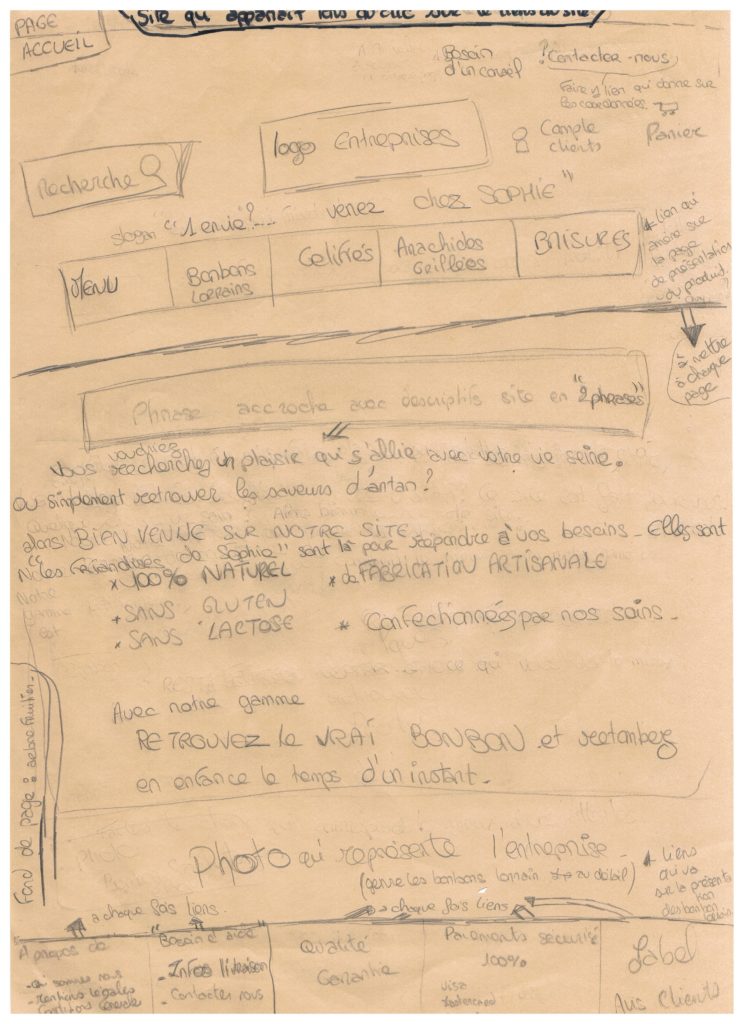 PAGE
ACCUEIL
Site qui apparait lors du clic sur le liens du site
Besoin
d'un conseil
? Contacter-nous
Faire 1 lien qui donne sur
les coordonnées
logo Entreprises
Compte
clients
Panier
Recherche
slogan "1 envie?.... venez chez SOPHIE"
MENU
Bonbons
Lorrains
Gelifiés
Arachides
Grillées
BRISURES
+ lien qui
amène sur
la page
de présentation
du produit
à mettre
à chaque
page
Phrase accroche avec descriptifs site en "2 phrases"
voudriez
Vous recherchez un plaisir qui s'allie avec votre vie seine.
Ou simplement retrouver les saveurs d'antan?
alors BIENVENUE SUR NOTRE SITE
"les Friandises de Sophie" sont là pour répondre à vos besoins - Elles sont
* 100% NATUREL
* de FABRICATION ARTISANALE
* SANS GLUTEN
* SANS LACTOSE
* Confectionnées par nos soins -
Avec notre gamme
RETROUVEZ le VRAI BONBON et retombez
en enfance le temps d'un instant -
Fond de page : arbre fruitier -
Photo qui représente l'entreprise -
(genre les bonbons lorrain au détail)
+ liens
qui va
sur la présenta
tion
des bonbon
à chaque fois liens
à chaque fois liens
A propos de
- qui sommes nous
- mentions légales
"Besoin d'aide"
- Infos livraison
- Contacter nous
Qualité
Garantie
Paiements sécurisé
100%
visa
mastercard
Label
Avis Clients